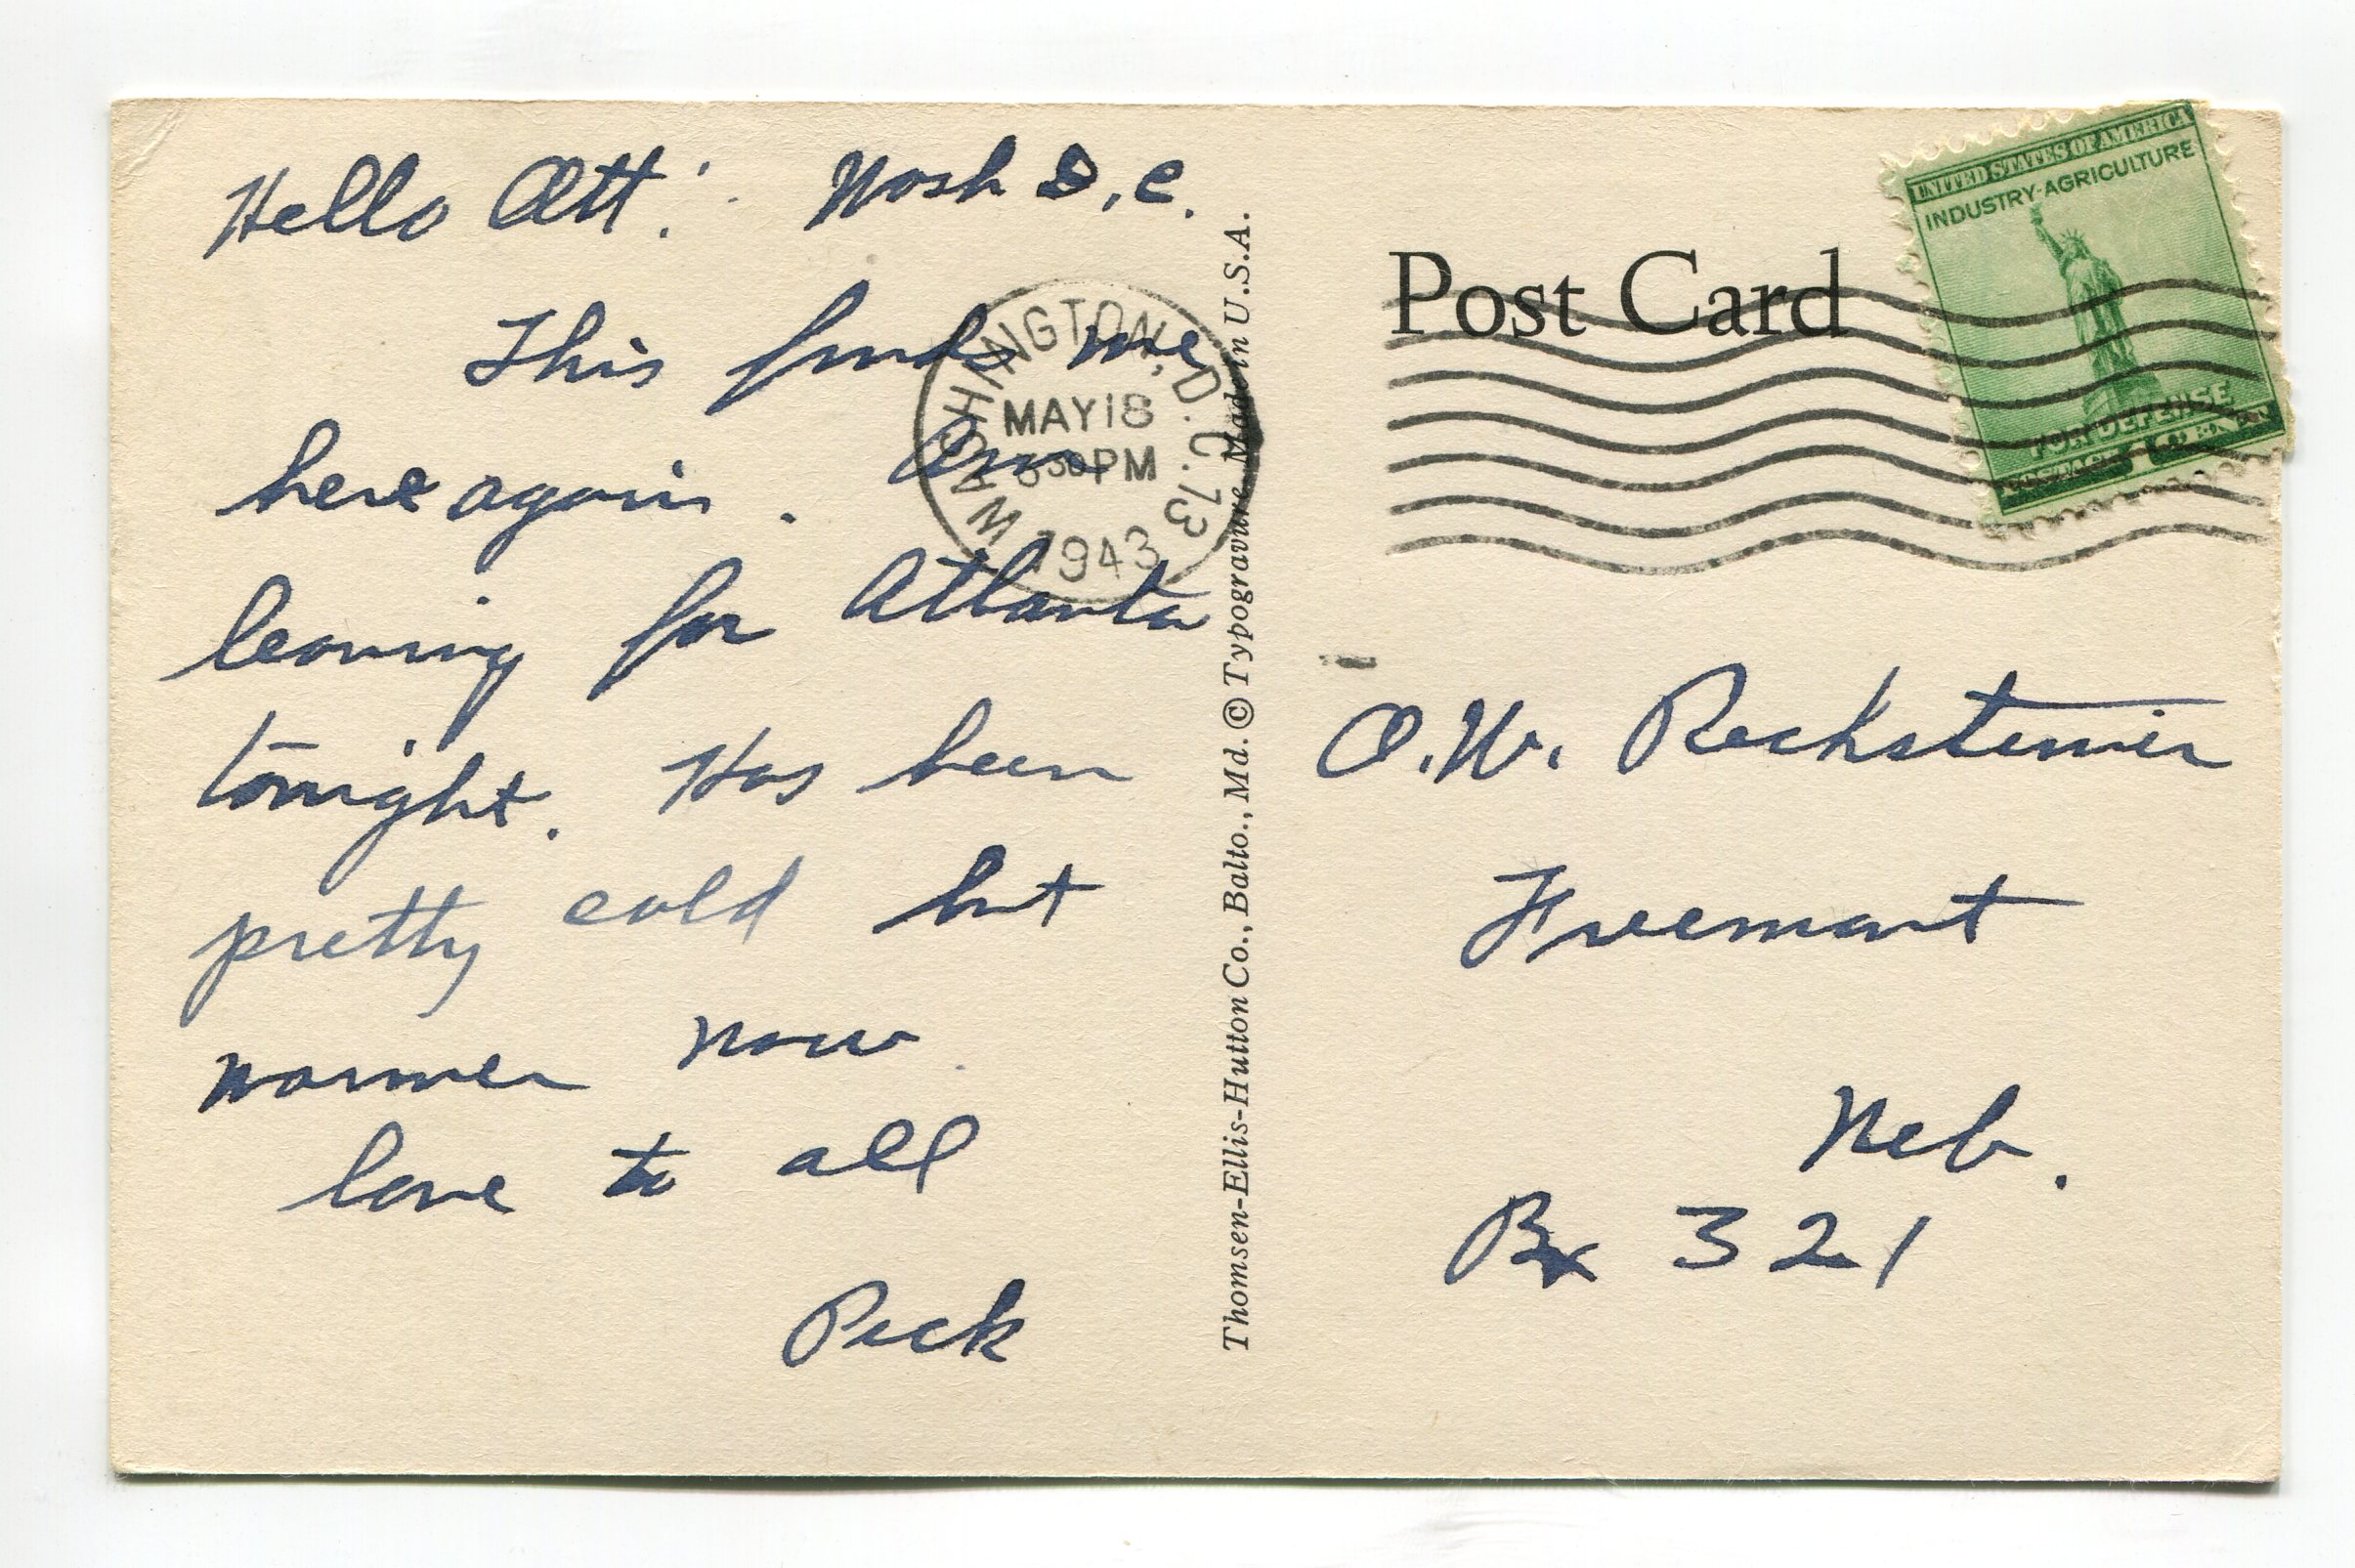 Hello Ott! Wash D.C.
This finds me
here again. Am
leaving for Atlanta
tonight. Has been
pretty cold but
warmer now.
love to all
Peck
WASHINGTON, D.C. 73
MAY 18
30 PM
1943
Thomsen-Ellis-Hutton Co., Balto., Md. © Typogravure Made in U.S.A.
Post Card
UNITED STATES OF AMERICA
INDUSTRY·AGRICULTURE
FOR DEFENSE
POSTAGE
O.W.
Freemont
Neb.
Bx 321